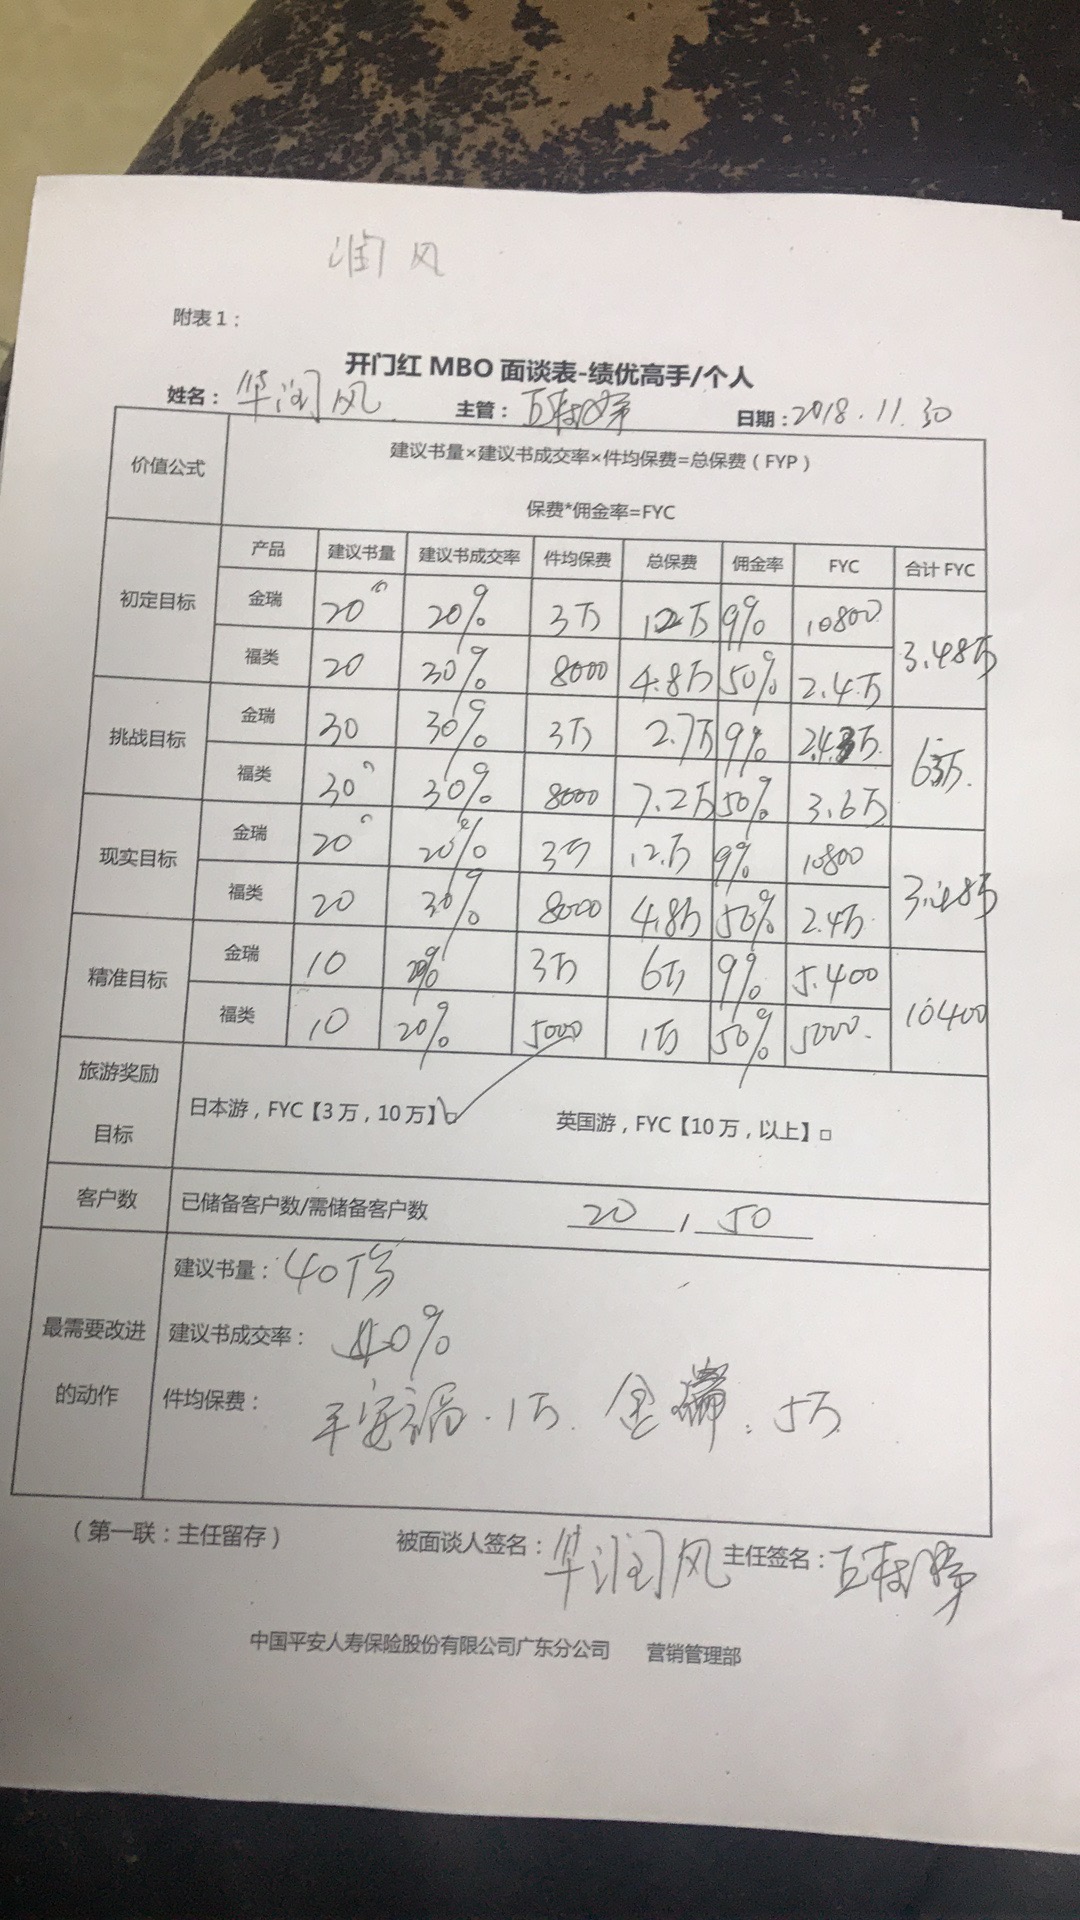 润风
附表1：
开门红 MBO 面谈表-绩优高手/个人
姓名： 华润风 主管： 日期：2018.11.30
价值公式 建议书量×建议书成交率×件均保费=总保费（FYP）
保费*佣金率=FYC
产品 建议书量 建议书成交率 件均保费 总保费 佣金率 FYC 合计 FYC
初定目标 金瑞 20 20% 3万 12万 9% 10800 3.48万
福类 20 30% 8000 4.8万 50% 2.4万
挑战目标 金瑞 30 30% 3万 2.7万 9% 2.43万 6万
福类 30 30% 8000 7.2万 50% 3.6万
现实目标 金瑞 20 20% 3万 12万 9% 10800 3.48万
福类 20 30% 8000 4.8万 50% 2.4万
精准目标 金瑞 10 20% 3万 6万 9% 5.400 10400
福类 10 20% 5000 1万 50% 5000.
旅游奖励
目标
日本游，FYC【3万，10万】□ 英国游，FYC【10万，以上】□
客户数 已储备客户数/需储备客户数 20 , 50
最需要改进
的动作
建议书量：40份
建议书成交率： 40%
件均保费： 平安福.1万. 金 : 5万
（第一联：主任留存） 被面谈人签名：华润风 主任签名：
中国平安人寿保险股份有限公司广东分公司 营销管理部